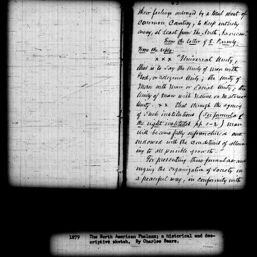 their feelings outraged by a total want of
common Courtesy; to keep entirely
away, at least from the North American
From the letter of E. Rously.
From the reply.
x x x "Universal Unity,
that is to say the Unity of man with
God, or religious Unity; the unity of
Man with man or Social Unity; the
Unity of man with Nature or material
Unity. x x That through the agency
of such institutions (see formula of
the right instituted pp 1-2) man
will become fully
endowed with the conditions of
to all possible growth.
For presenting this formula and
urging the organization of Society in
a peaceful way, in conformity with
1879 The North American Phalanx; a historical and des-
criptive sketch, By Charles Sears.